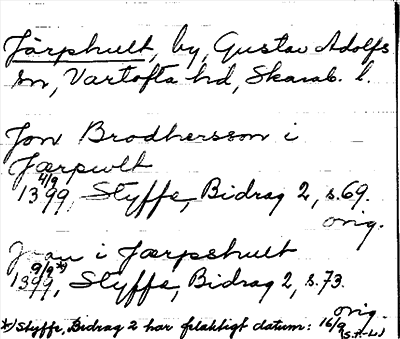 Järphult, by, Gustav Adolfs
sn, Vartofta hd, Skarab. l.
Jon Brodhersson i
Jærpult
4/9
1399, Styffe, Bidrag 2, s.69.
orig.
i Jærpshult
9/9 *)
1399, Styffe, Bidrag 2, s.73.
orig.
*) Styffe, Bidrag 2 har felaktigt datum: 16/9